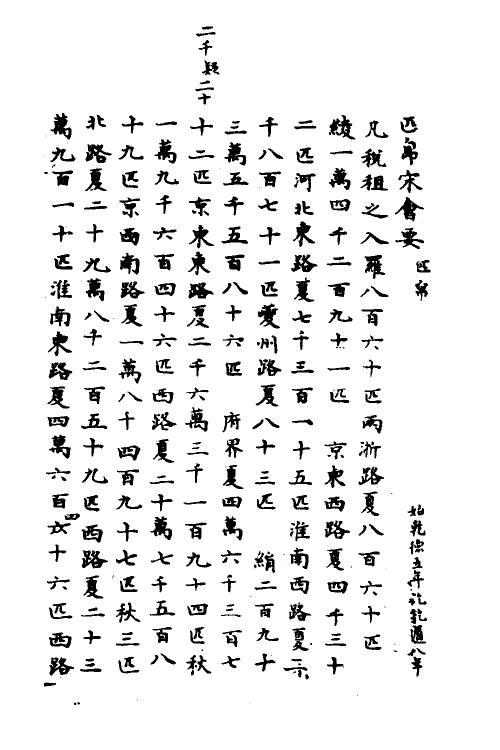 匹帛宋會要 匹帛 始乾德五年訖乾道八年
凡稅租之入羅八百六十匹兩浙路夏八百六十匹
綾一萬四千二百九十一匹 京東西路夏四千三十
二匹河北東路夏七千三百一十五匹淮南西路夏二
千八百七十一匹夔州路夏八十三匹 絹二百九十
三萬五千五百八十六匹 府界夏四萬六千三百七
二千疑二十
十二匹京東東路夏二千六萬三千一百九十四匹秋
一萬九千六百四十六匹西路夏二十萬七千五百八
十九匹京西南路夏一萬八千四百九十七匹秋三匹
北路夏二十九萬八千二百五十九匹西路夏二十三
萬九百一十匹淮南東路夏四萬六百六四十六匹西路